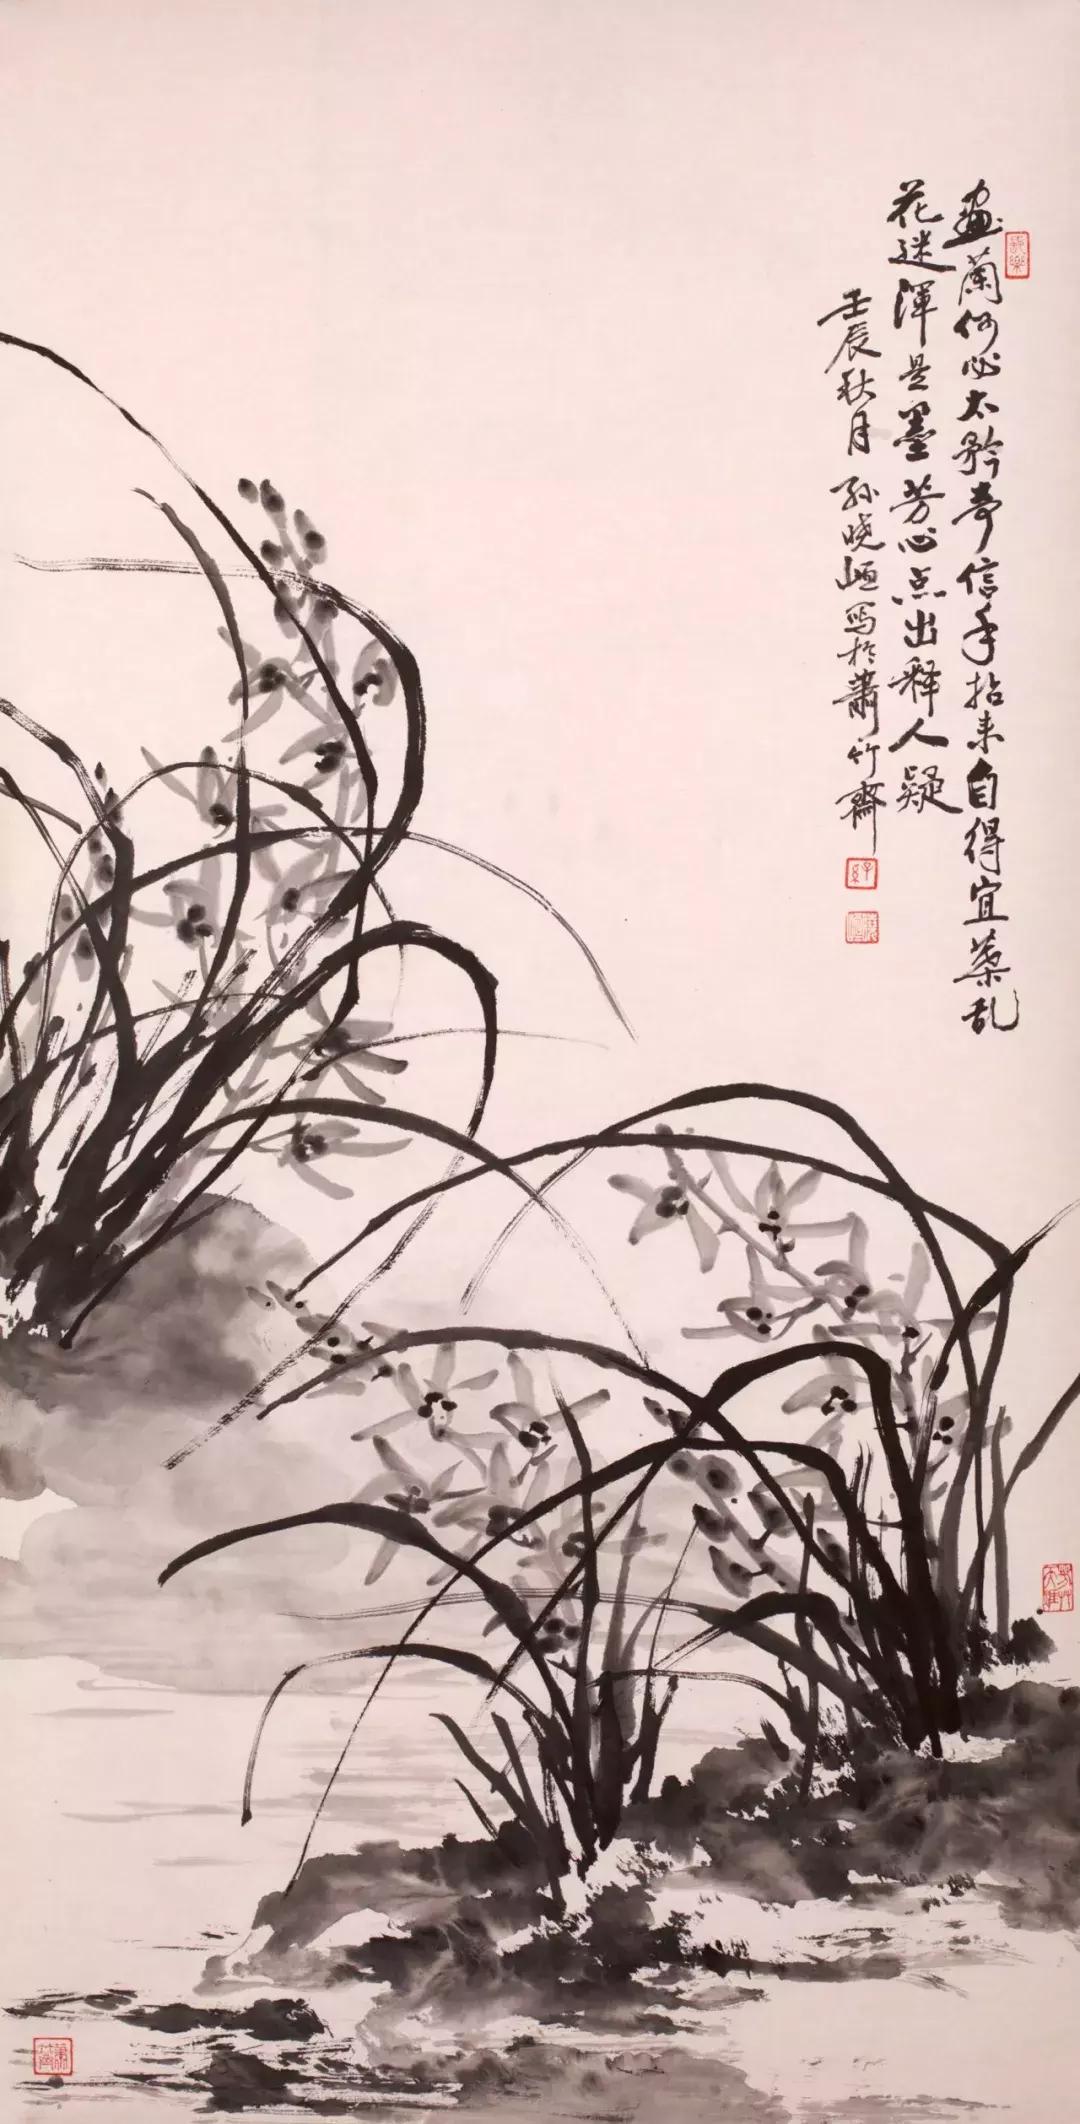 畫蘭何必太矜奇信手拈来自得宜葉乱
花迷渾是墨芳心点出释人疑
壬辰秋月孙晓峘写於蕭竹齋